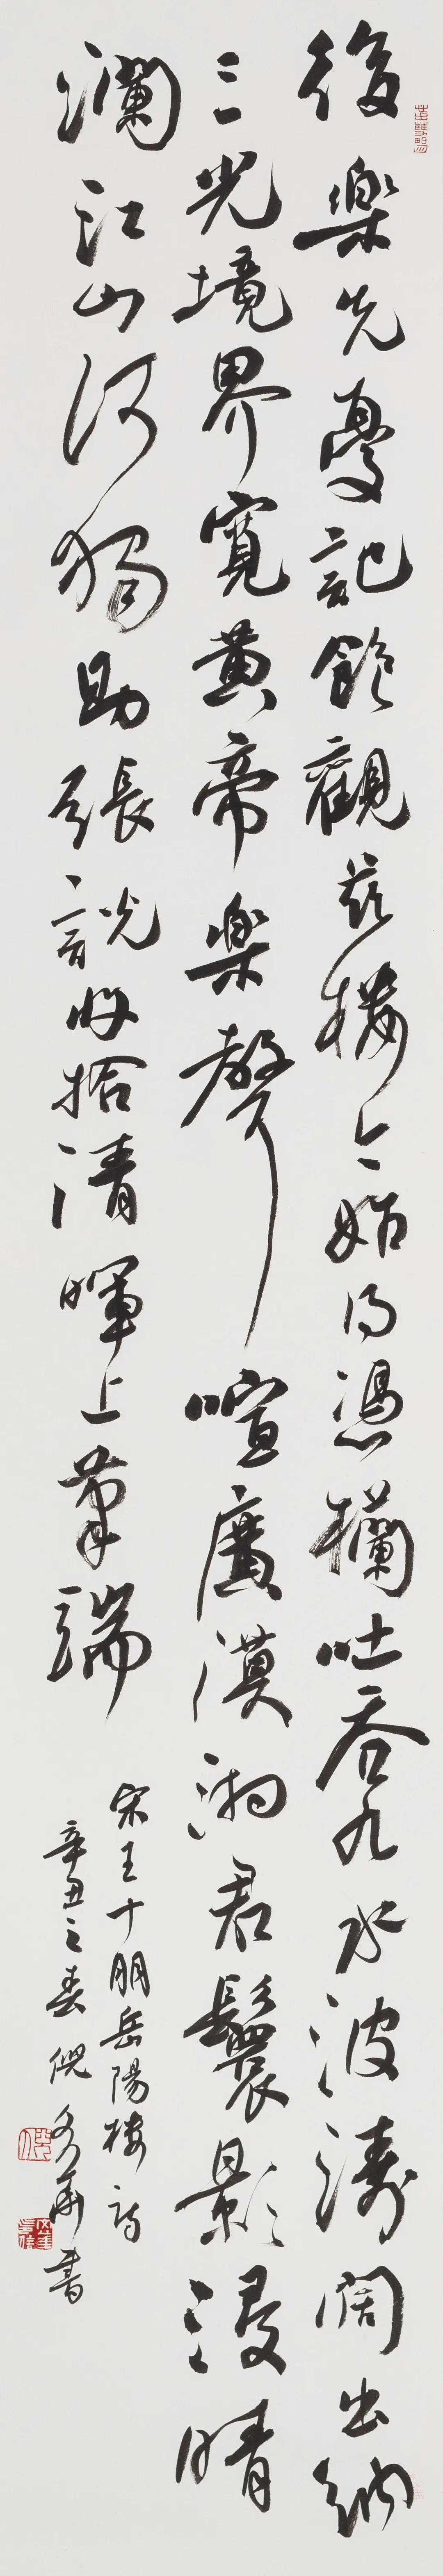 後樂先憂記飽觀茲樓今始得憑欄吐吞九水波濤闊出納
三光境界寬黃帝樂聲喧廣漠湘君鬟影浸晴
瀾江山何獨助張說收拾清暉上筆端
宋王十朋岳陽樓詩
辛丑之春倪為華書